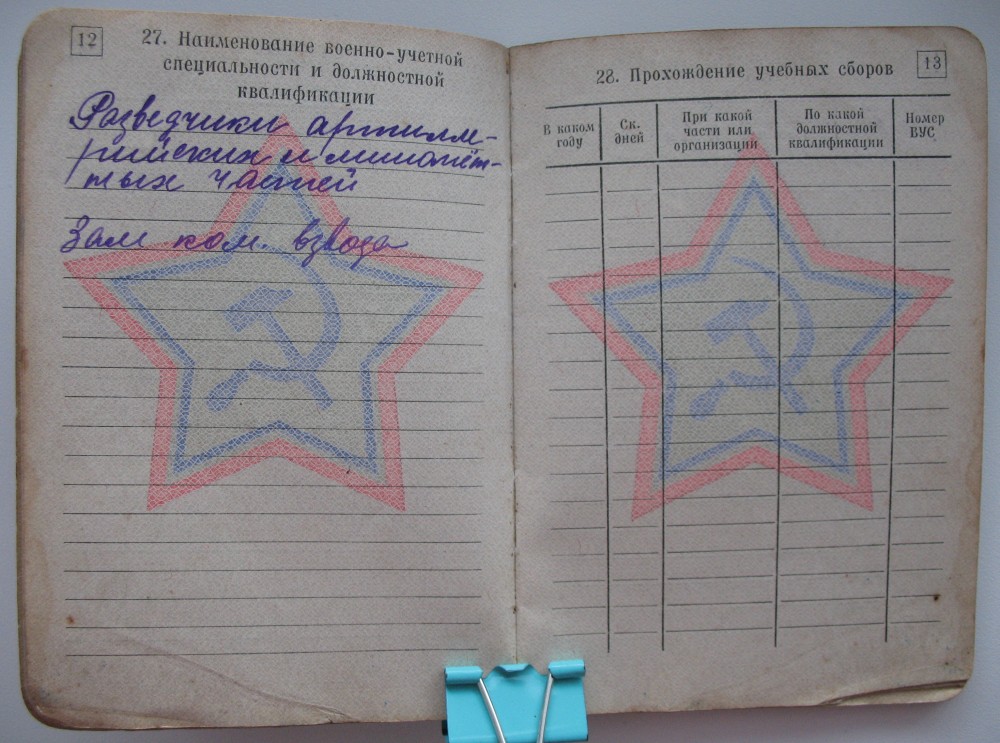 12
27. Наименование военно-учетной
специальности и должностной
квалификации
Разведчики артилле-
рийских и миномёт-
ных частей
Зам ком. взвода
13
28. Прохождение учебных сборов
В каком
году
Ск.
дней
При какой
части или
организаций
По какой
должностной
квалификации
Номер
ВУС